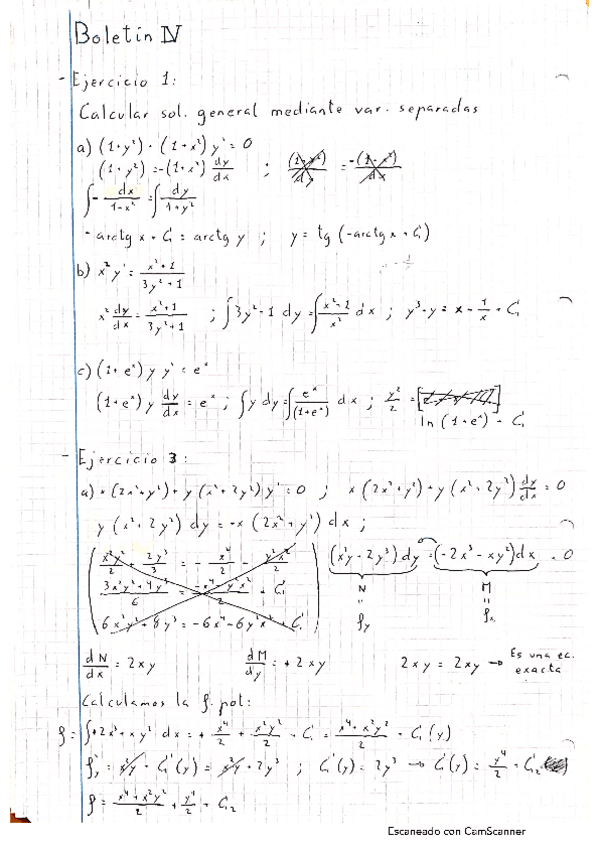 Boletín IV
- Ejercicio 1:
Calcular sol. general mediante var. separadas
a) (1+y²) + (1+x²) y' = 0
(1+y²) = -(1+x²) dy/dx ;
∫ - dx/(1+x²) = ∫ dy/(1+y²)
- arctg x + C₁ = arctg y ; y = tg (-arctg x + C₁)
b) x² y' = (x²+1)/(3y²+1)
x² dy/dx = (x²+1)/(3y²+1) ; ∫ 3y²+1 dy = ∫ (x²+1)/x² dx ; y³+y = x - 1/x + C₁
c) (1+eˣ) y y' = eˣ
(1+eˣ) y dy/dx = eˣ ; ∫ y dy = ∫ eˣ/(1+eˣ) dx ; y²/2 =
ln (1+eˣ) + C₁
- Ejercicio 3:
a) x (2x²+y²) + y (x²+2y²) y' = 0 ; x (2x²+y²) + y (x²+2y²) dy/dx = 0
y (x²+2y²) dy = -x (2x²+y²) dx ;
(x²y + 2y³) dy (-2x³ - xy²) dx = 0
N M
" "
f_y f_x
dN/dx = 2xy dM/dy = +2xy 2xy = 2xy → Es una ec. exacta
Calculamos la f. pot:
f = ∫ +2x³ + xy² dx = + x⁴/2 + x²y²/2 + C₁ = (x⁴+x²y²)/2 + C₁(y)
f'_y = x²y + C₁'(y) = x²y + 2y³ ; C₁'(y) = 2y³ → C₁(y) = y⁴/2 + C₂
f = (x⁴+x²y²)/2 + y⁴/2 + C₂
Escaneado con CamScanner